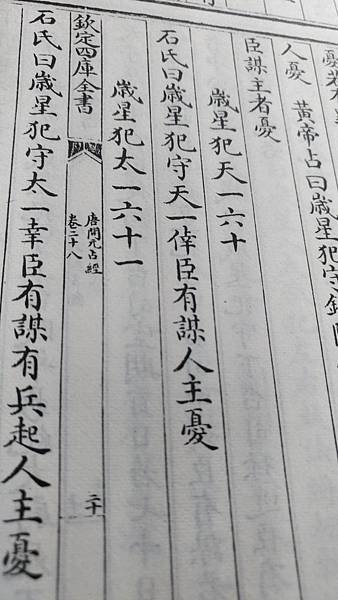 人憂　黄帝占曰歳星犯守
臣謀主者憂
歳星犯天一六十
石氏曰歳星犯守天一倖臣有謀人主憂
歳星犯太一六十一
欽定四庫全書
唐開元占經
卷二十八
二十
石氏曰歳星犯守太一幸臣有謀有兵起人主憂